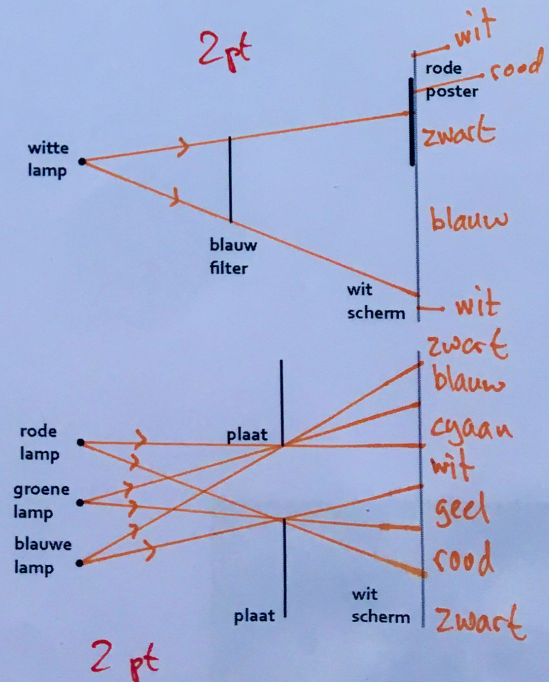 2pt
wit
rode
poster
rood
zwart
witte
lamp
blauw
blauw
filter
wit
scherm
wit
zwart
blauw
rode
lamp
plaat
cyaan
wit
groene
lamp
geel
blauwe
lamp
rood
plaat
wit
scherm
zwart
2 pt